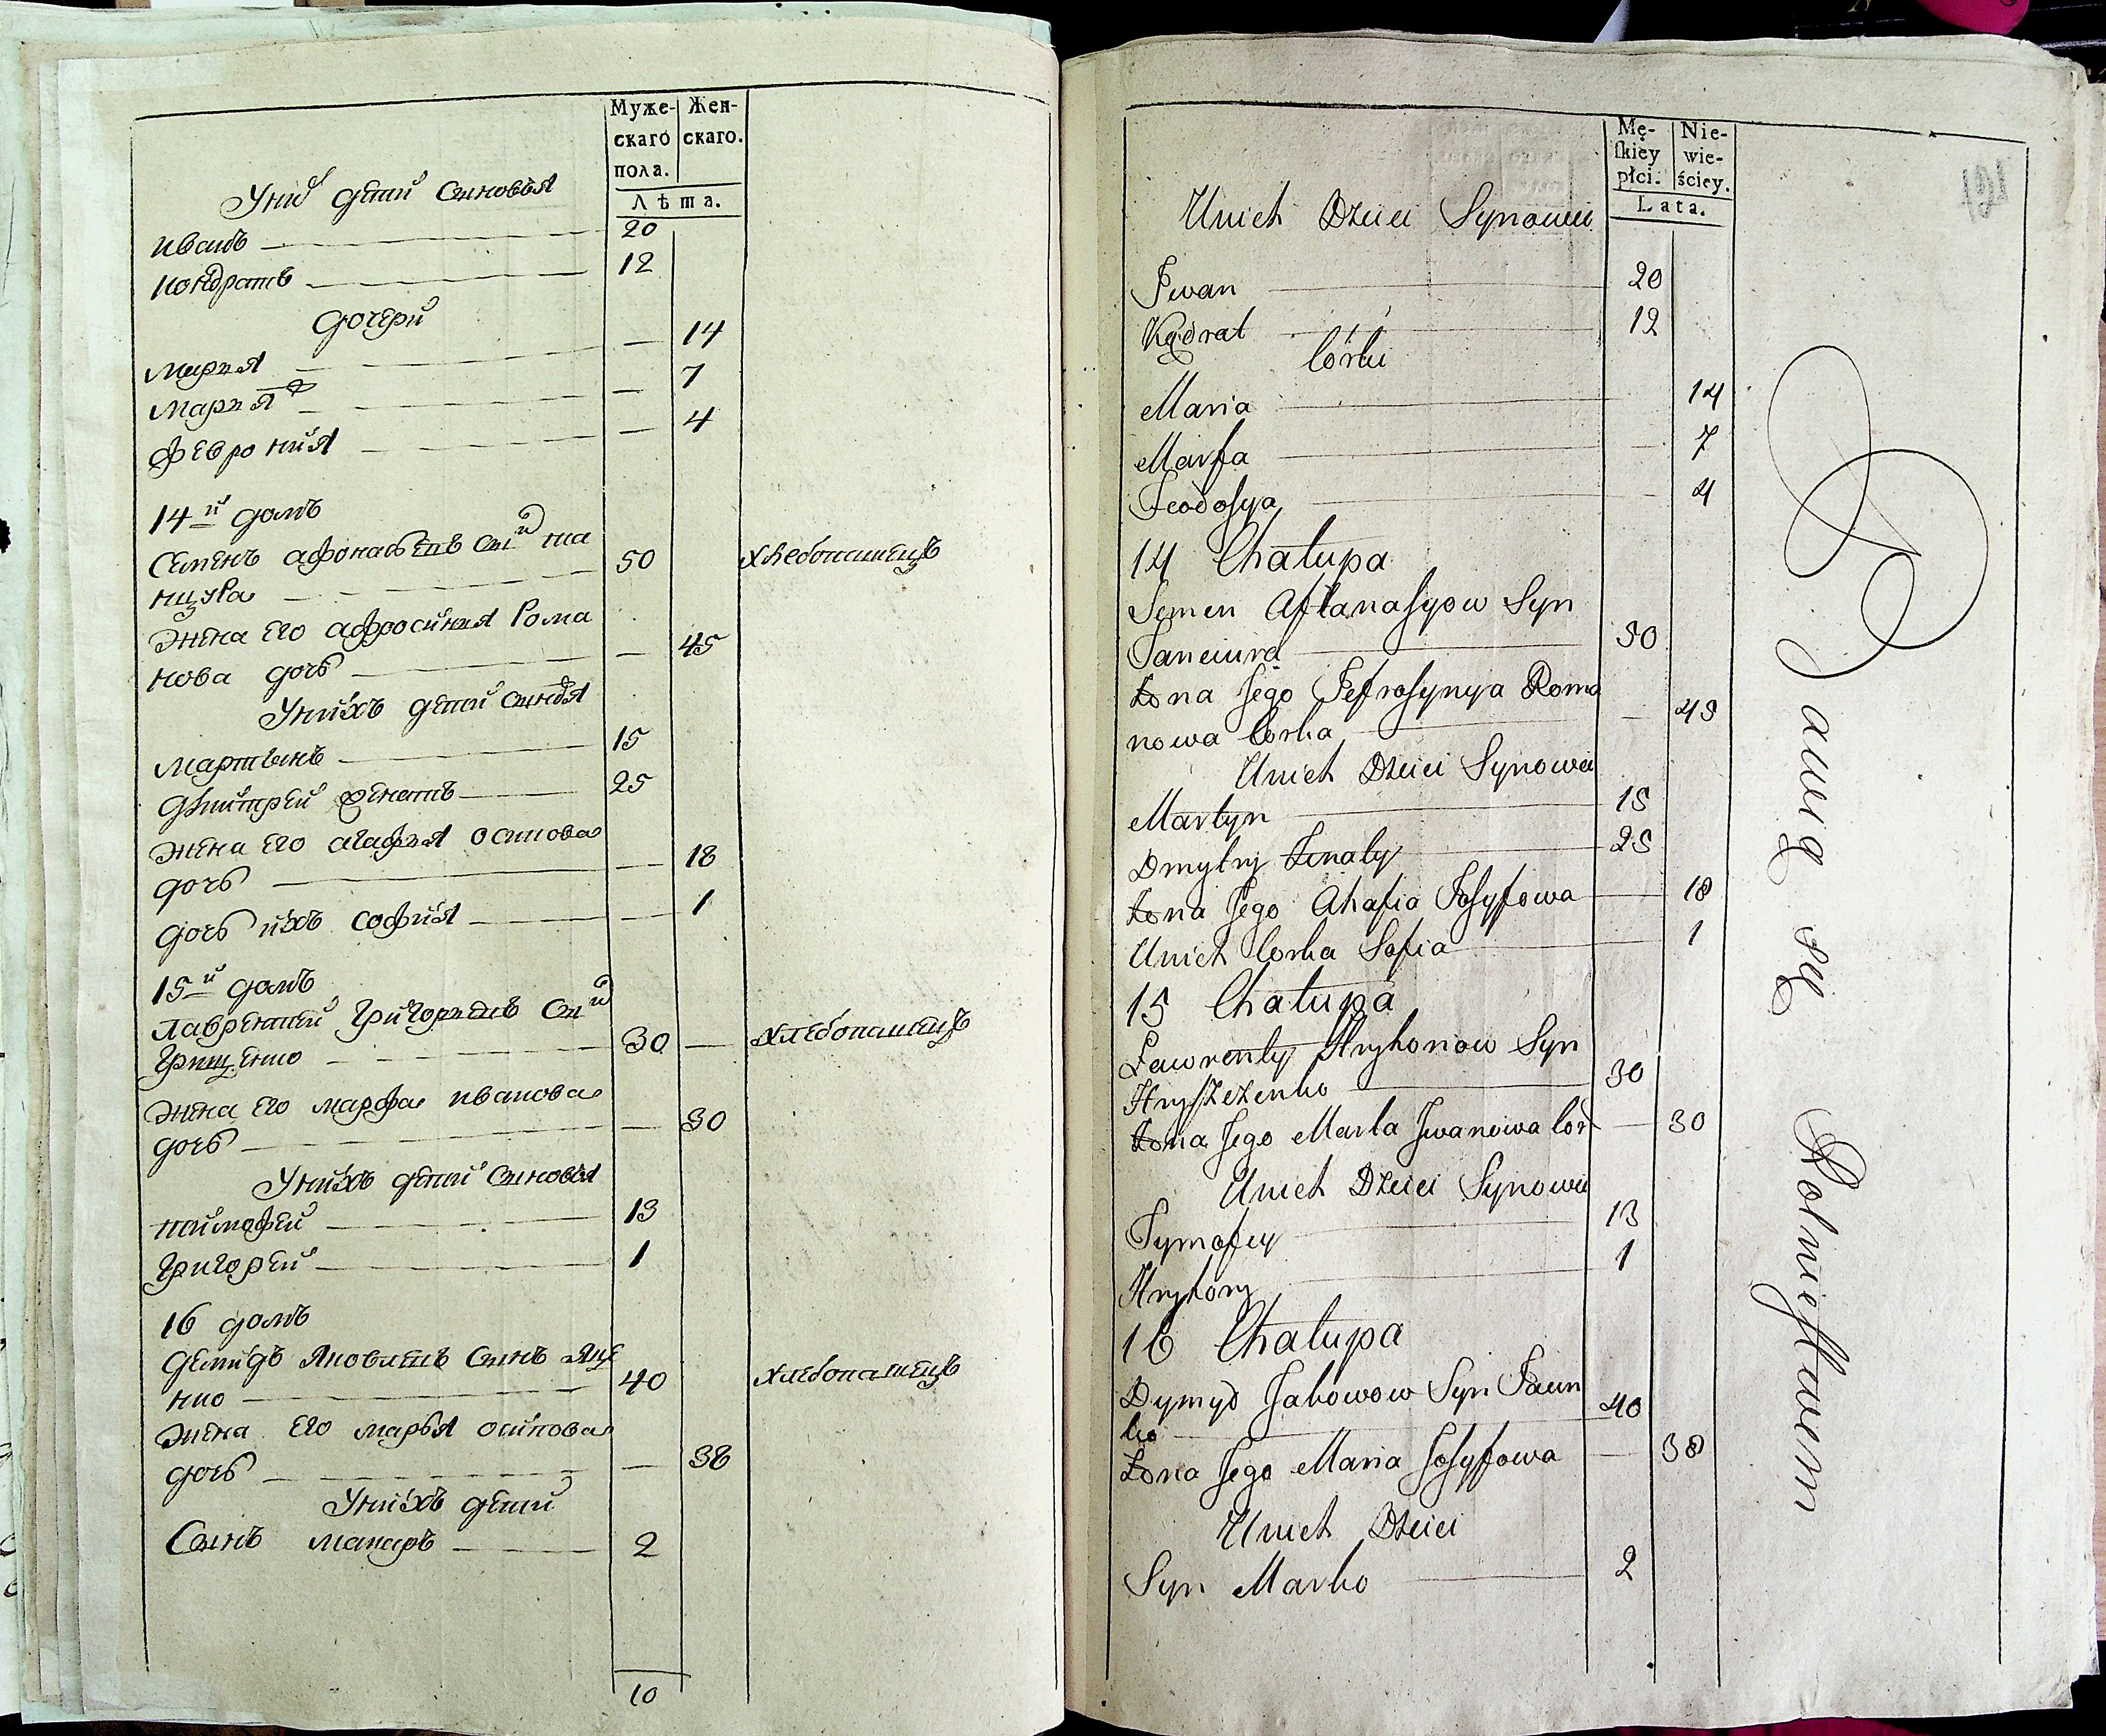 Муже- Жен-
скаго скаго.
пола.
Лѣта.
У них детей сыновья
иванъ 20
кондратъ 12
дочери
мария 14
марѳа 7
феврония 4
14й домъ
Семенъ афонасьевъ сын та
нцура 50 хлебопашецъ
жена его афросиния Рома
нова дочь 45
У нихъ детей сыновья
мартынъ 15
дмитрей женатъ 25
жена его агафия осипова
дочь 18
дочь ихъ софия 1
15й домъ
Лаврентей григорьевъ сын
грищенко 30 хлебопашецъ
жена его марфа иванова
дочь 30
У нихъ детей сыновья
тимофей 13
григорей 1
16 домъ
демидъ яковлевъ сынъ яце
нко 40 хлебопашецъ
жена его марья осипова
дочь 38
У нихъ детей
Сынъ макаръ 2
10
Mę- Nie-
skiey wie-
płci. ściey.
Lata.
191
Unich Dzieci Synowei
Iwan 20
Kądrat 12
Córki
Maria 14
Marfa 7
Feodosya 4
14 Chałupa
Semen Aftanasyow Syn
Tanciura 50
Zona Jego Jefrosynya Roma
nowa Corka 45
Unich Dzieci Synowei
Martyn 15
Dmytry Zonaty 25
Zona Jego Ahafia Josyfowa 18
Unich Corka Sofia 1
15 Chałupa
Lawrenty Hryhoriow Syn
Hryszczenko 30
Zona Jego Marta Jwanowa Cor 30
Unich Dzieci Synowie
Tymofey 13
Hryhory 1
16 Chałupa
Dymyd Jakowow Syn Jacen
ko 40
Zona Jego Maria Josyfowa 38
Unich Dzieci
Syn Marko 2
Bawią się Rolnictwem